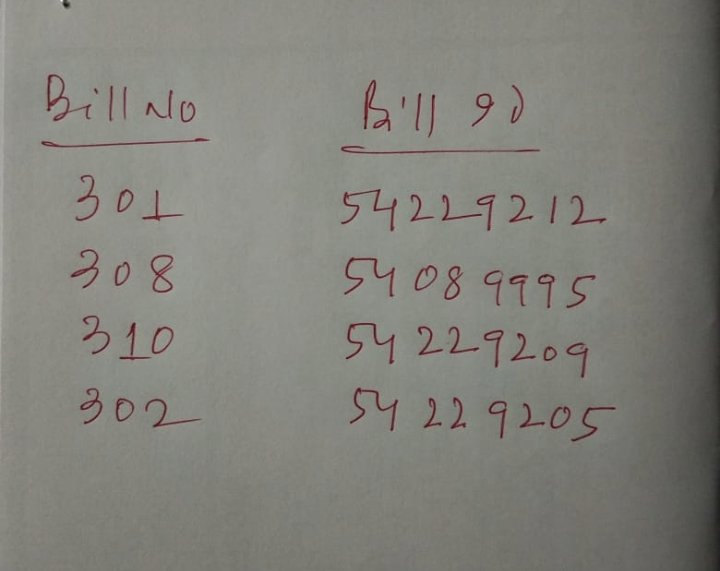 Bill No Bill ID
301 54229212
308 54089995
310 54229209
302 54229205